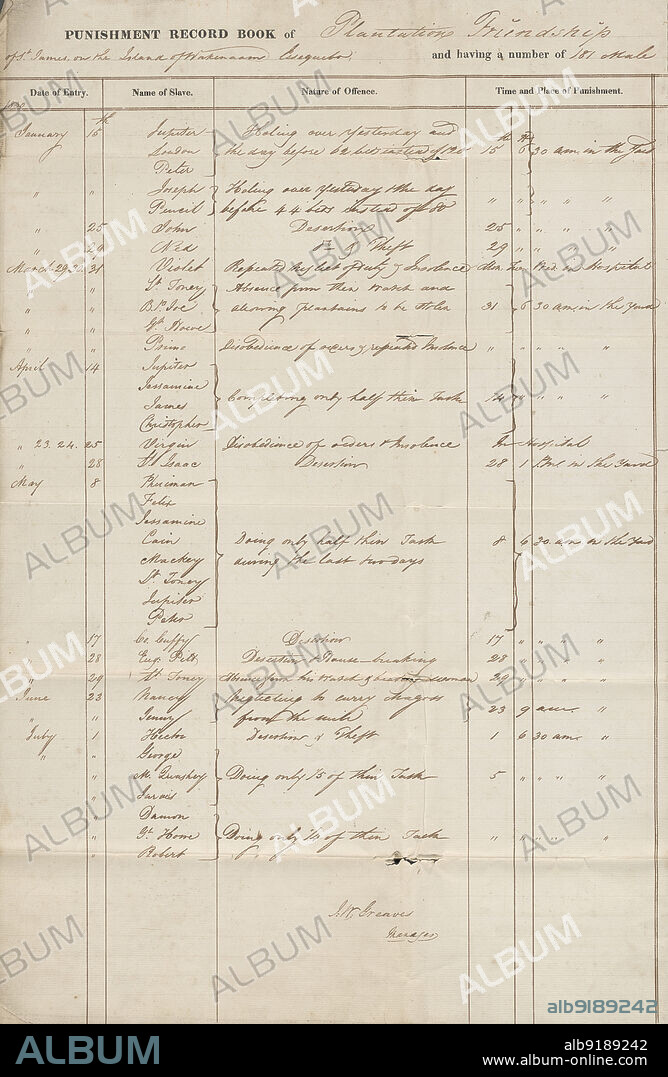 PUNISHMENT RECORD BOOK of Plantation Friendship
of St. James on the Island of Wakenaam Essequebo, and having a number of 181 Male
Date of Entry. Name of Slave. Nature of Offence. Time and Place of Punishment.
January 15th Jupiter Holing over Yesterday and
London the day before 62 beds instead of 120 15th 6 30 a.m. in the Yard
Peter
" " Joseph Holing over Yesterday & the day
Pencil before 44 beds instead of 80 " " " "
" 25 John Desertion 25 " " "
" 29 Ned Do. & Theft 29 " " "
March 29.30. 31 Violet Repeated neglect of duty & Insolence in Hospital
" " St. Toney Absence from their Watch and
" " Br. Joe allowing plantains to be stolen 31 6 30 a.m. in the Yard
" " Gt. Howe
" " Primo Disobedience of orders & repeated Insolence " " " "
April 14 Jupiter
Jessamine
James Completing only half their Task 14 " " "
Christopher
" 23. 24. 25 Virgin Disobedience of orders & Insolence In Hospital
" 28 Isaac Desertion 28 1 P.M. in the Yard
May 8
Felix
Jessamine
Cain Doing only half their Task 8 6 30 a.m. in the Yard
Mackey during the last two days
St. Toney
Jupiter
Peter
" 17 Co. Cuffy Desertion 17 " " "
" 28 Eug. Pitt Desertion & House breaking 28 " " "
" 29 St. Toney Absence from his Watch & beating a woman 29 " " "
June 23 Nancy Neglecting to carry Magass
" " Jenny from the mill 23 9 a.m. " "
July 1 Hector Desertion & Theft 1 6 30 a.m. "
" " George
" M. Quashey Doing only 1/5 of their Task 5 " " "
Jarvis
Damon
" Gt. Howe Doing only 1/2 of their Task " " " "
" Robert
J. W. Greaves
Manager
ALBUM
alb9189242
ALBUM
alb9189242
www.album-online.com